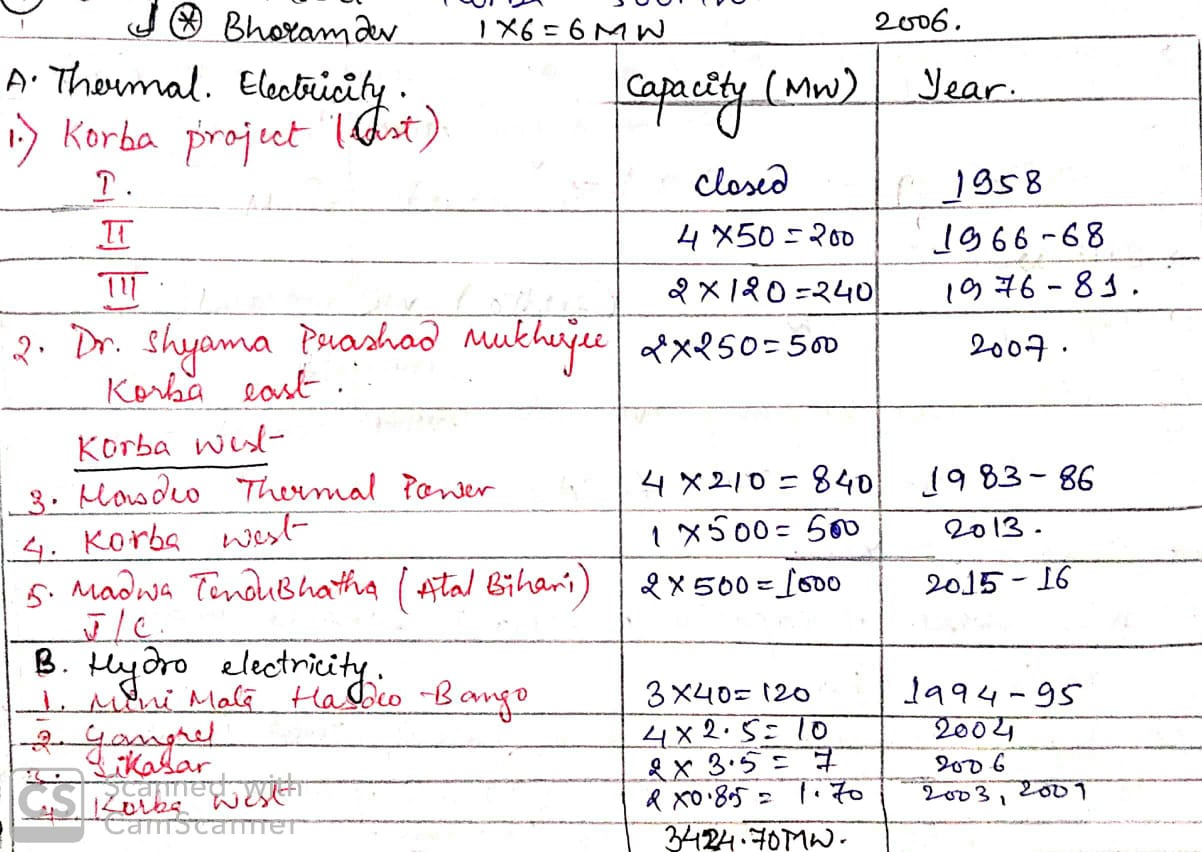 J ⊛ Bhoramdev 1 X6 = 6 MW 2006.
A. Thermal. Electricity. Capacity (MW) Year.
1.) Korba project (East)
I. closed 1958
II 4 X50 = 200 1966-68
III 2 X 120 =240 1976-81.
2. Dr. Shyama Prashad Mukherjee 2X250=500 2007.
Korba east.
Korba west
3. Hasdeo Thermal Power 4 X210 = 840 1983-86
4. Korba west 1 X500= 500 2013.
5. Madwa TenduBhatha (Atal Bihari) 2X500=1000 2015-16
J/C.
B. Hydro electricity.
1. Mini Mata Hasdeo-Bango 3X40= 120 1994-95
2. Gangrel 4X2.5= 10 2004
3. Sikasar 2X 3.5 = 7 2006
4. Korba West 2 X0.85 = 1.70 2003, 2009
3424.70MW.
CS Scanned with
CamScanner